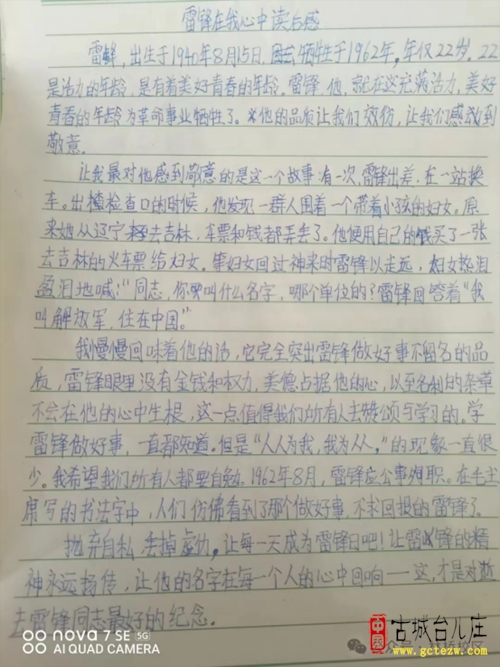 雷锋在我心中读后感
雷锋，出生于1940年8月15日，牺牲于1962年，年仅22岁，22
是活力的年龄，是有着美好青春的年龄，雷锋，他，就在这充满活力，美好
青春的年龄为革命事业牺牲了。他的品质让我们效仿，让我们感感到
敬意。
让我最对他感到敬意的是这一个故事：有一次，雷锋出差，在一站换
车。出检查口的时候，他发现一群人围着一个带着小孩的妇女。原
来她从辽宁去吉林，车票和钱都弄丢了。他便用自己的钱买了一张
去吉林的火车票给妇女。等妇女回过神来时雷锋以走远，妇女热泪
盈眶地喊："同志，你叫什么名字，哪个单位的？雷锋回答着"我
叫解放军，住在中国。"
我慢慢回味着他的话，它完全突出雷锋做好事不留名的品
质，雷锋眼里没有金钱和权力，美德占据他的心，以至名利的杂草
不会在他的心中生根，这一点值得我们所有人去赞颂与学习的，学
雷锋做好事，一直都知道。但是"人人为我，我为人人。"的现象一直很
少。我希望我们所有人都要自勉。1962年8月，雷锋应公事殉职。在毛主
席写的书法字中，人们仿佛看到了那个做好事，不求回报的雷锋了。
抛弃自私，去掉虚伪，让每一天成为雷锋日吧！让雷锋的精
神永远扬传，让他的名字在每一个人的心中回响——这，才是对逝
去雷锋同志最好的纪念。
nova 7 SE 5G
AI QUAD CAMERA
古城台儿庄
www.gctezw.com